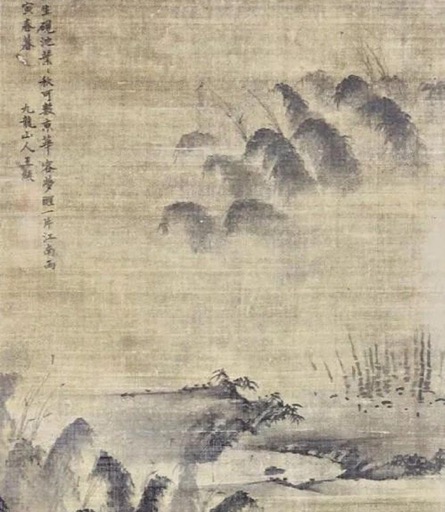 生硯池葉〻秋可數京華客夢醒一片江南雨
寅春暮
九龍山人王紱